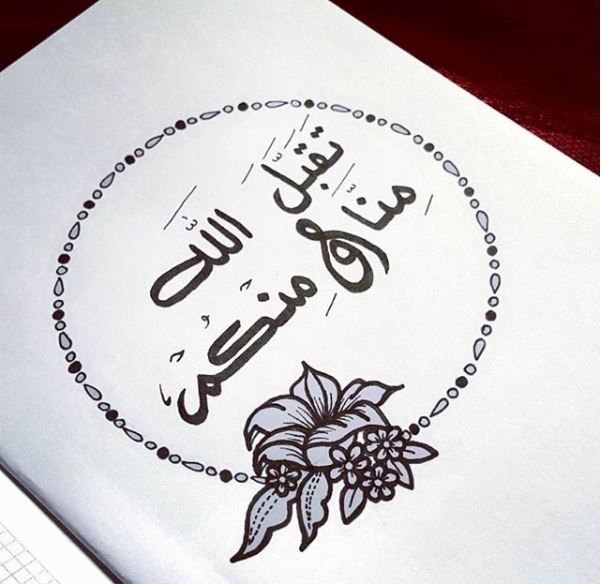 تقبّل اللّٰه
منّا و منكُم